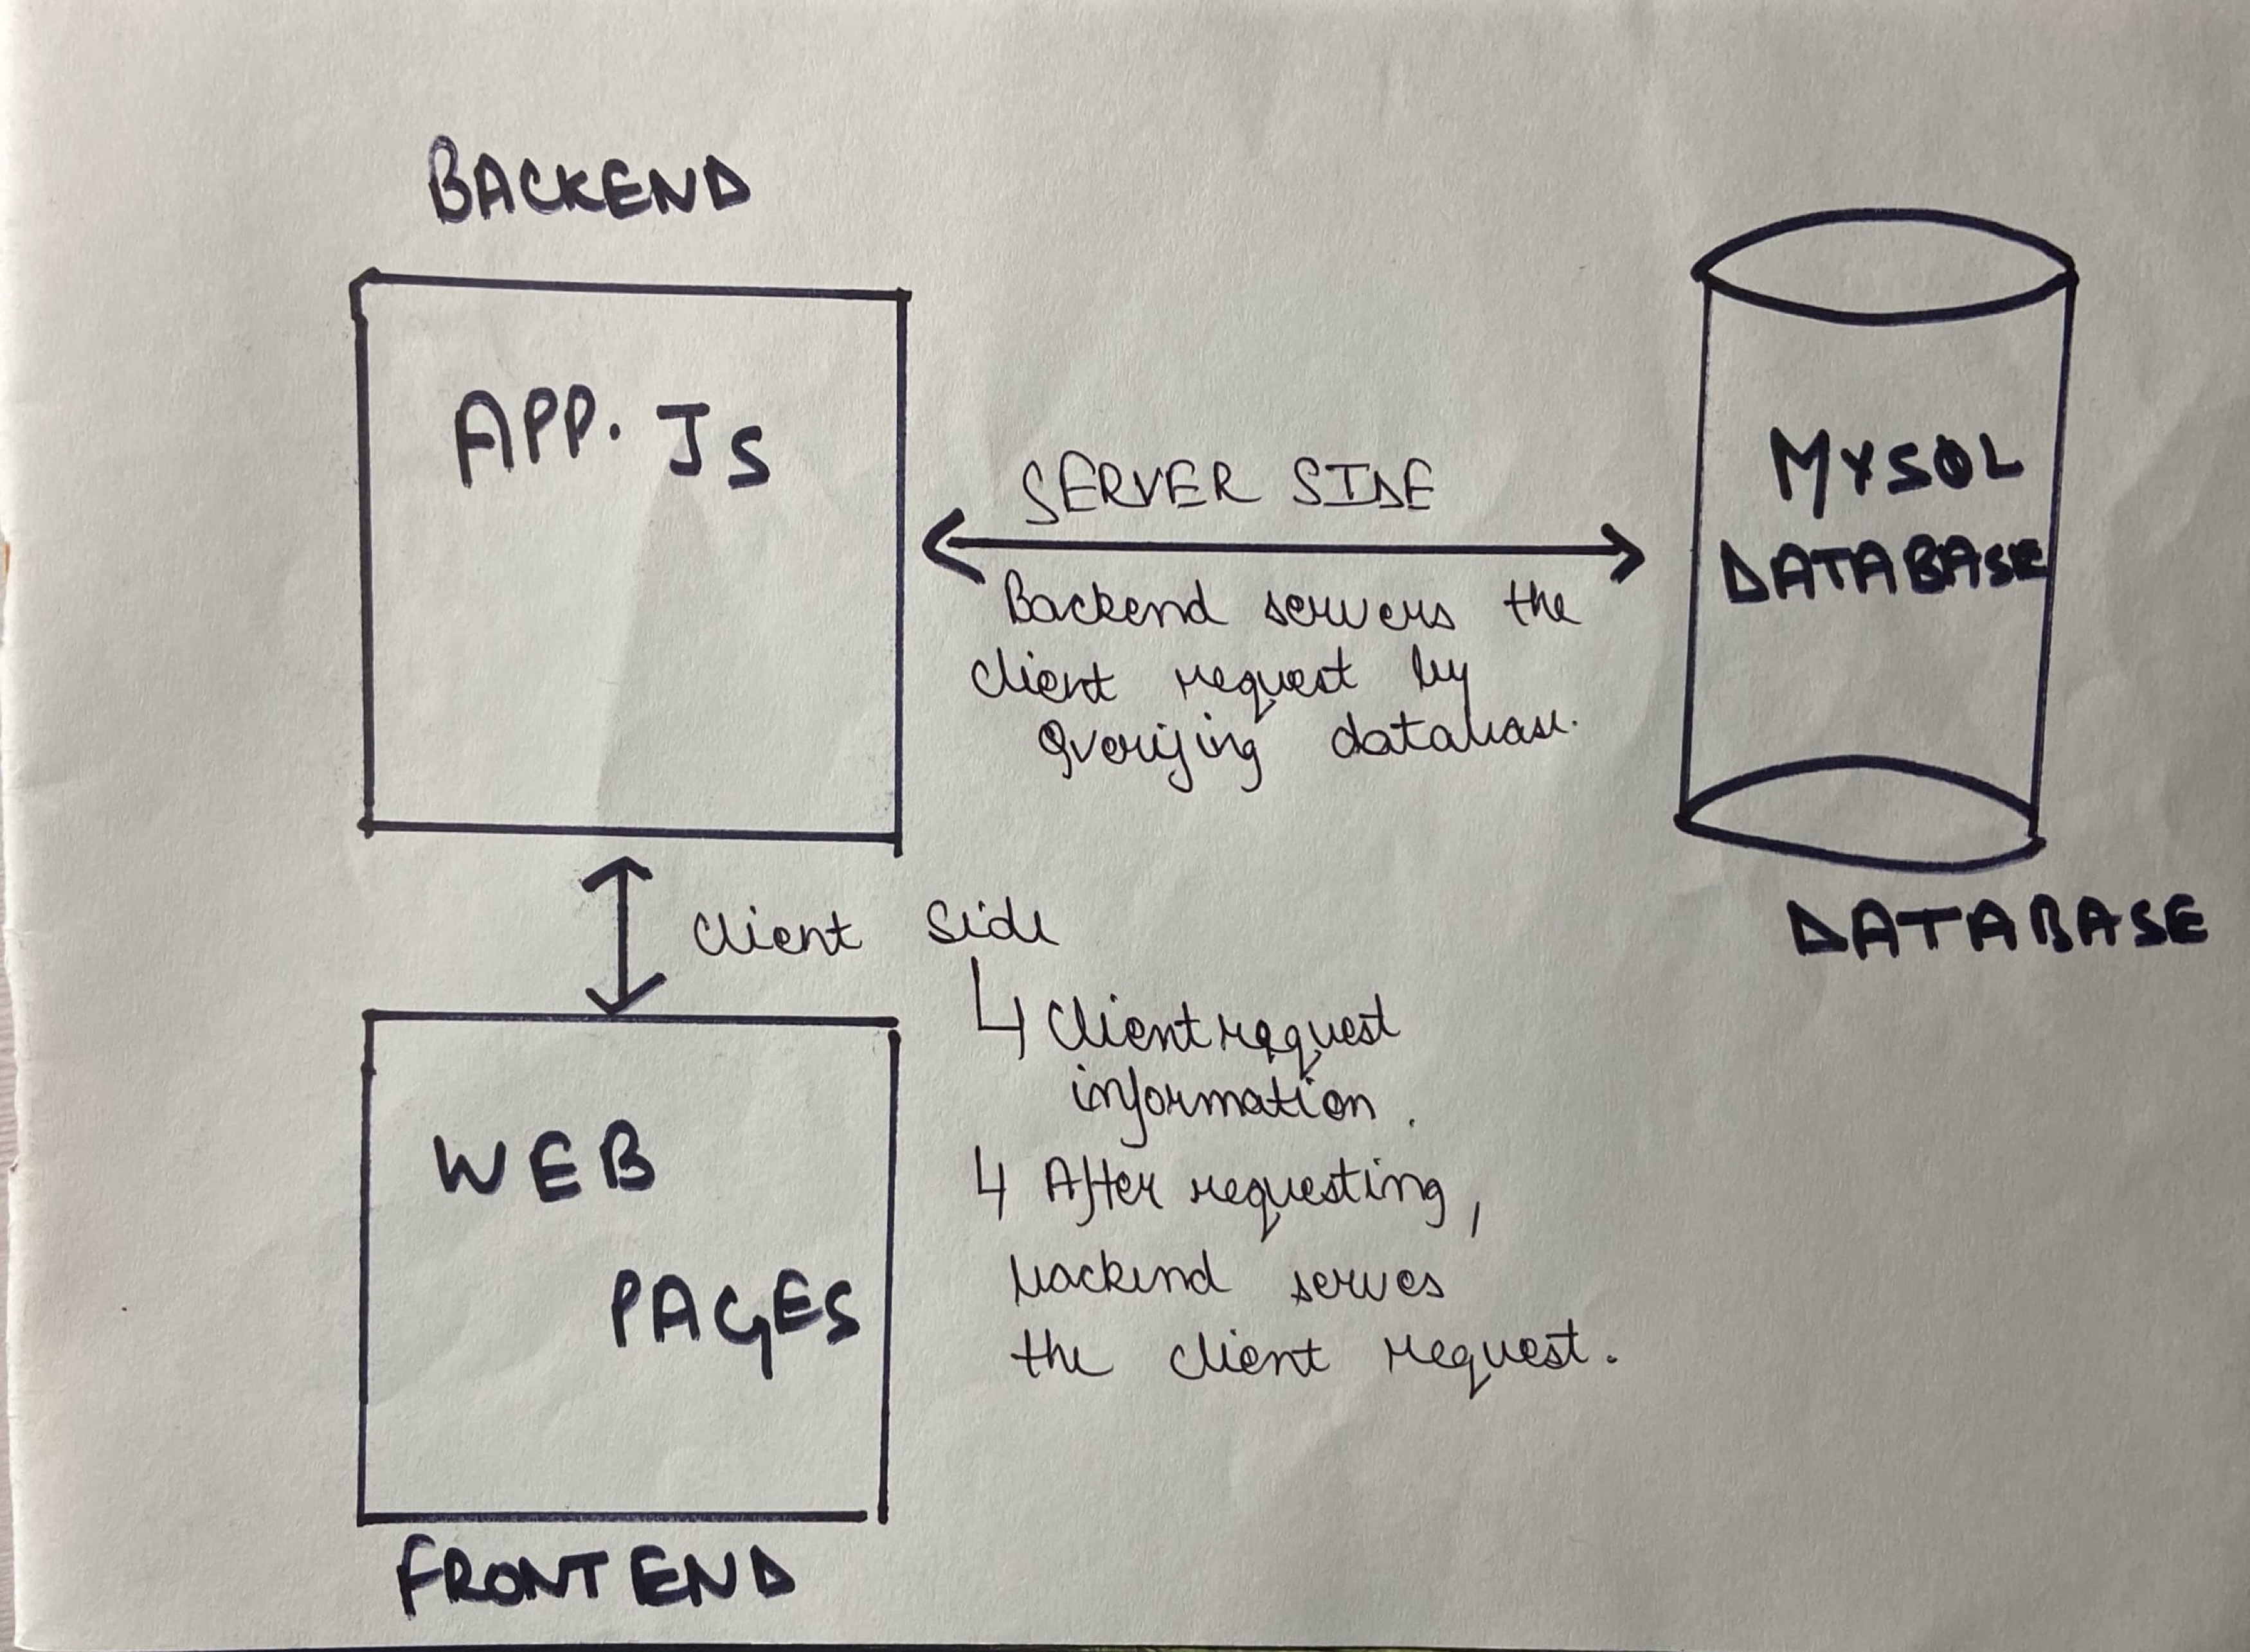 BACKEND
APP. JS
SERVER SIDE
Backend servers the
client request by
Querijing database.
MYSQL
DATABASE
DATABASE
Client side
↳ Client request
information.
↳ After requesting,
backend serves
the client request.
WEB
PAGES
FRONTEND